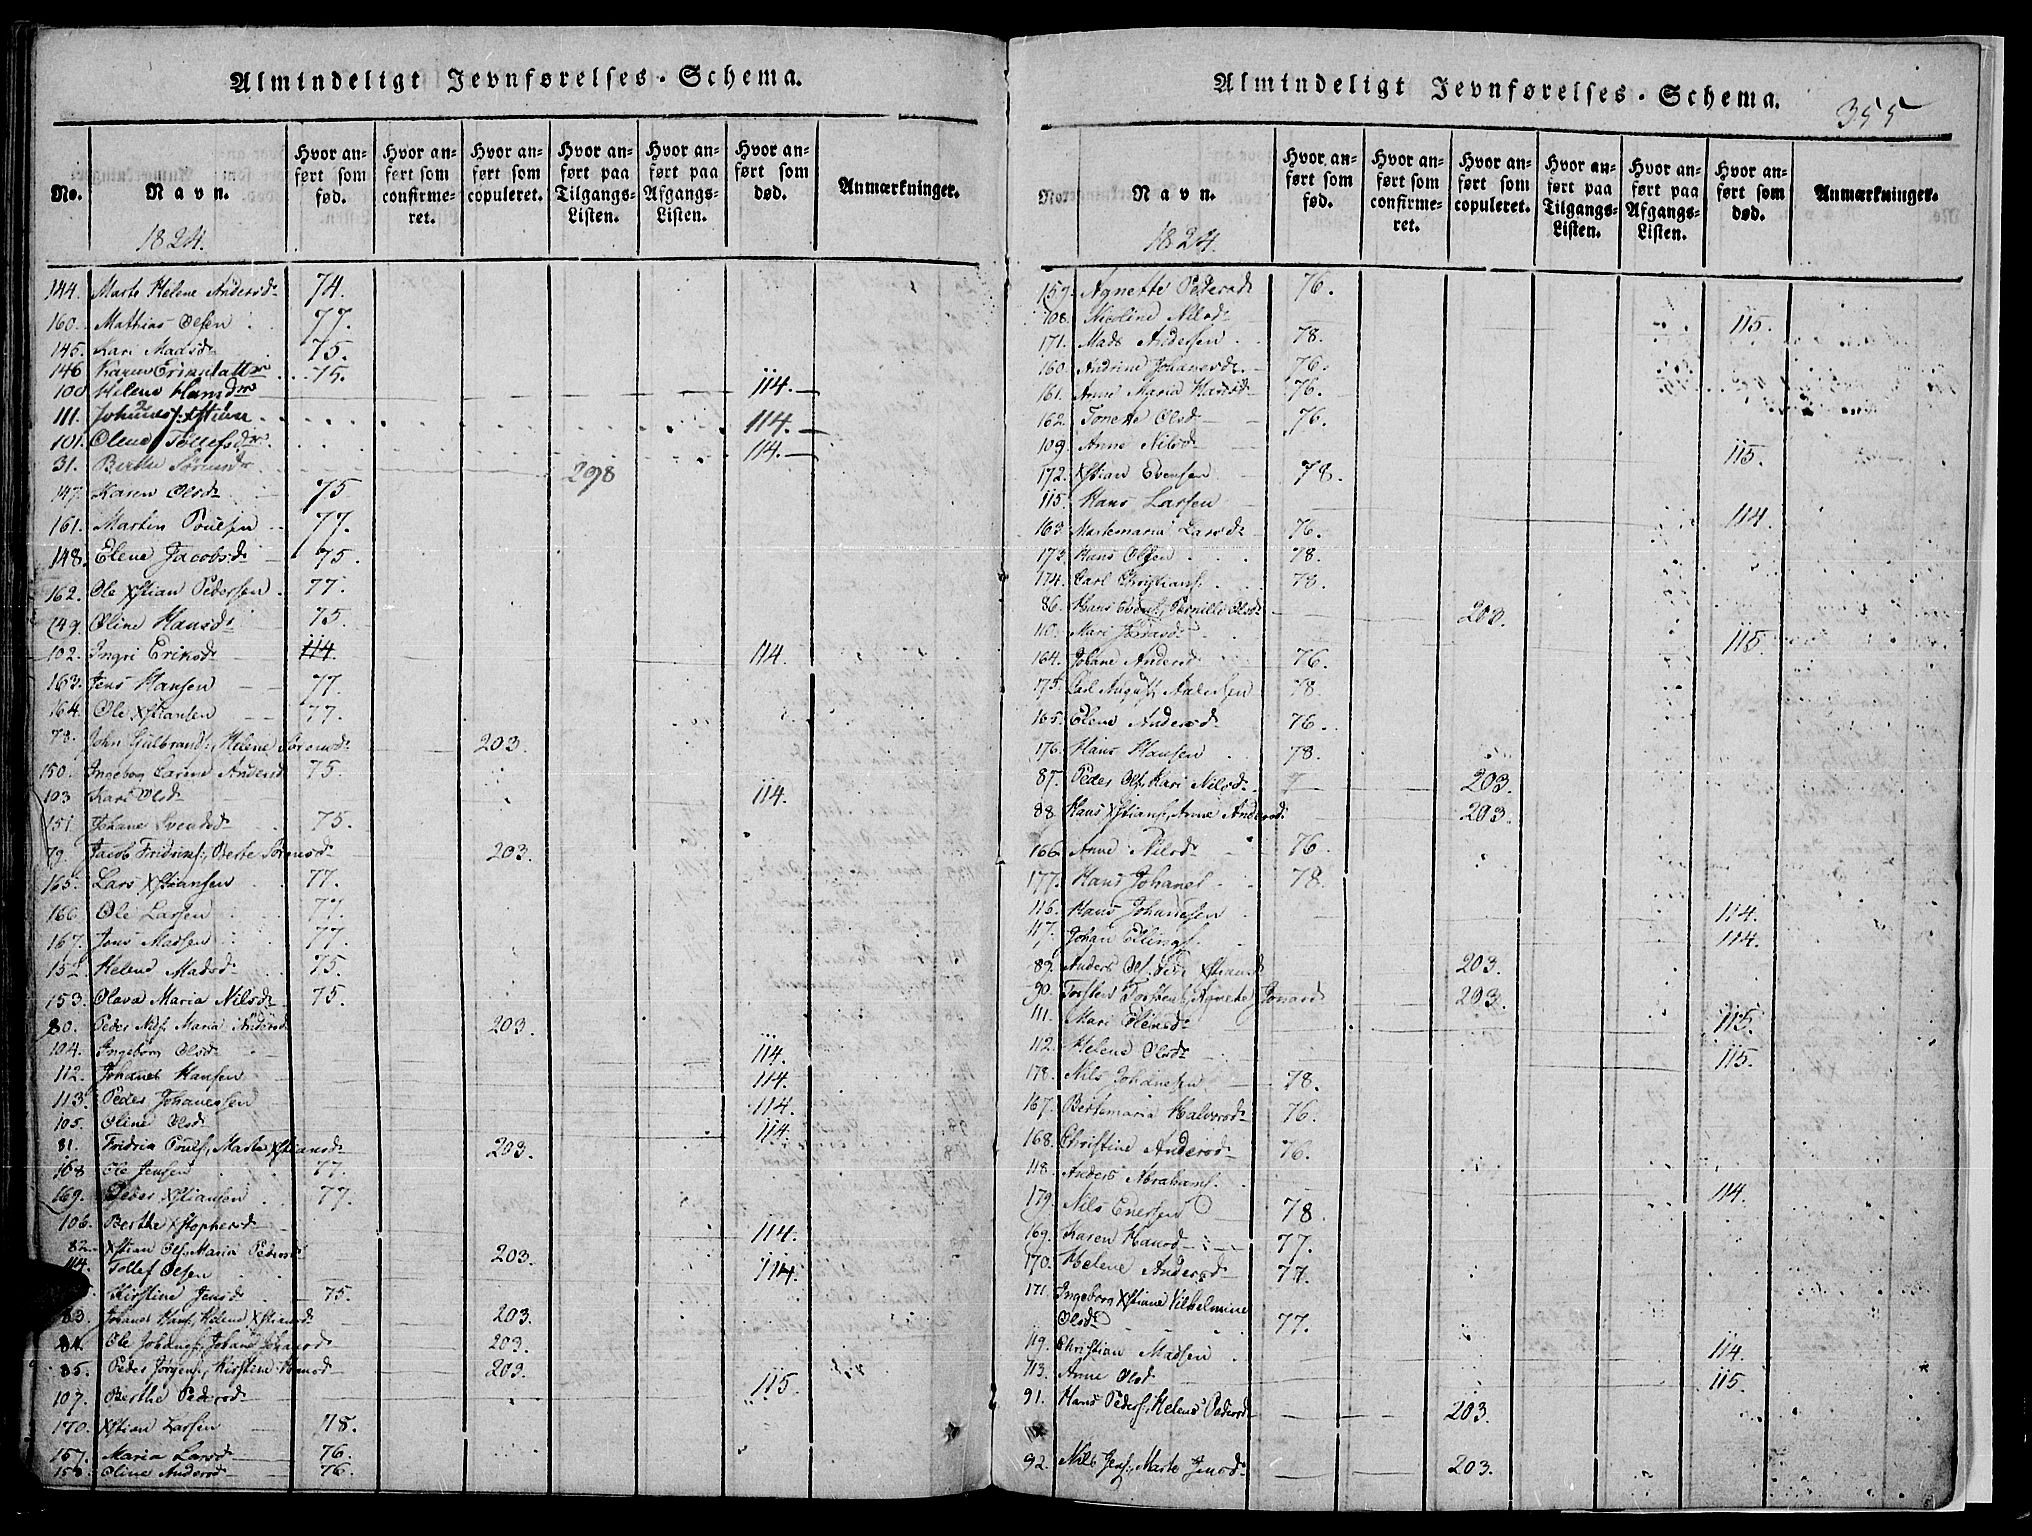 Almindeligt Jevnførelses-Schema.
No. Navn. Hvor anført som fød. Hvor anført som confirmeret. Hvor anført som copuleret. Hvor anført paa Tilgangs-Listen. Hvor anført paa Afgangs-Listen. Hvor anført som død. Anmærkninger.
1824.
144. Marte Helene Andersd 74.
160. Mathias Olsen 77.
145. Kari Madsd 75.
146 Karen 75.
100 Helene Hansdr 114.
111. Johannes Xstian 114.
101. Olene Tollefsdr 114.
31. Berthe Sørensdr 298
147. Karen Olsd 75
161. Martin Poulsen 77.
148. Elene Jacobsd 75.
162. Ole Xstian Pedersen 77.
149. Oline Hansd 75.
102. Ingri Eriksd 114 114.
163. Jens Hansen 77.
164. Ole Xstiansen 77.
78. John Gulbrands, Helene Sørensd 203.
150. Ingeborg Carine Andersd 75.
103 Kari Olsd 114.
151. Johane Svendsd 75.
79. Jacob Fridrics, Berte Sørensd 203.
165. Lars Xstiansen 77.
166. Ole Larsen 77.
167. Jens Madsen 77.
152 Helene Madsd 75.
153. Olava Maria Nilsd 75.
80. Peder Nils. Maria Andersd 203.
104. Ingeborg Olsd 114.
112. Johanes Hansen 114.
113. Peder Johanessen 114.
105. Oline Olsd 114.
81. Fridric Pouls, Marte Xstiansd 203.
168 Ole Jensen 77.
169. Peder Xstiansen 77.
106. Berthe Xstophersd 114.
82. Xstian Ols, Maria Pedersd 203.
114. Tollef Olsen 114.
Kirstine Jensd 75.
83. Johanes Hans, Helene Xstiansd 203.
84. Ole Johans, Johane Johansd 203.
85. Peder Jørgens, Kirstine Hansd 203.
107. Berthe Pedersd 115.
170. Xstian Larsen 78.
157. Maria Larsd 76.
158. Oline Andersd 76.
Almindeligt Jevnførelses-Schema.
355
No. Navn. Hvor anført som fød. Hvor anført som confirmeret. Hvor anført som copuleret. Hvor anført paa Tilgangs-Listen. Hvor anført paa Afgangs-Listen. Hvor anført som død. Anmærkninger.
1824.
159. Agnette Pedersd 76.
108. Nicoline Nilsd 115.
171. Mads Andersen 78.
160. Andrine Johanesd 76.
161. Anne Maria Hansd 76.
162. Tonette Olsd 76.
109. Anne Nilsd 115.
172. Xstian Evensen 78.
115. Hans Larsen 114.
163. Martemaria Larsd 76.
173. Hans Olsen 78.
174. Carl Christians 78.
86. Hans Evens, Pernille Olsd 203.
110. Mari Jonasd 115.
164. Johane Andersd 76.
175. Carl August 78.
165. Elene Andersd 76.
176. Hans Hansen 78.
87. Peder Ols, Kari Nilsd 203.
88. Hans Xstians, Anne Andersd 203.
166. Anne Nilsd 76.
177. Hans Johanes 78.
116. Hans Johanesen 114.
117. Johan Ellings 114.
89. Anders Ols, Xstiansd 203.
90. Torsten Torstens, Agnethe Jonasd 203.
111. Mari Olensd 115.
112. Helene Olsd 115.
178. Nils Johanesen 78.
167. Bertemaria Halvorsd 76.
168. Christine Andersd 76.
118. Anders Abrahams 114.
179. Nils Enersen 78.
169. Karen Hansd 77.
170. Helene Andersd 77.
171. Ingeborg Xstiane Vilhelmine
Olsd 77.
119. Christian Madsen 114.
113. Anne Olsd 115.
91. Hans Peders, Helene Pedersd 203.
92. Nils Jens, Marte Jensd 203.